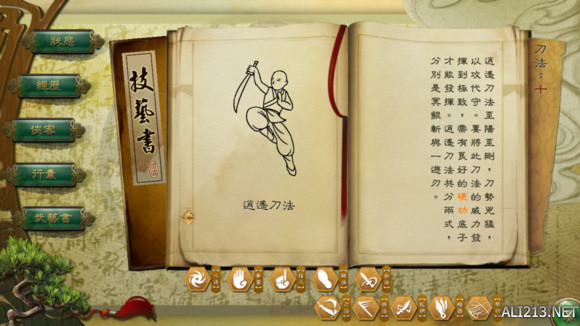 狀態
經歷
俠客
行囊
技藝書
技藝書
逍遙刀法
刀法：十
逍遙刀法至陽至剛，刀勢兇猛，
以攻代守。要將此刀法的威力發
揮到極致，需有良好的硬功底子
才能發揮。逍遙刀法共分兩式，
分別是冥餛斬與一遊刃。
ALI213.NET